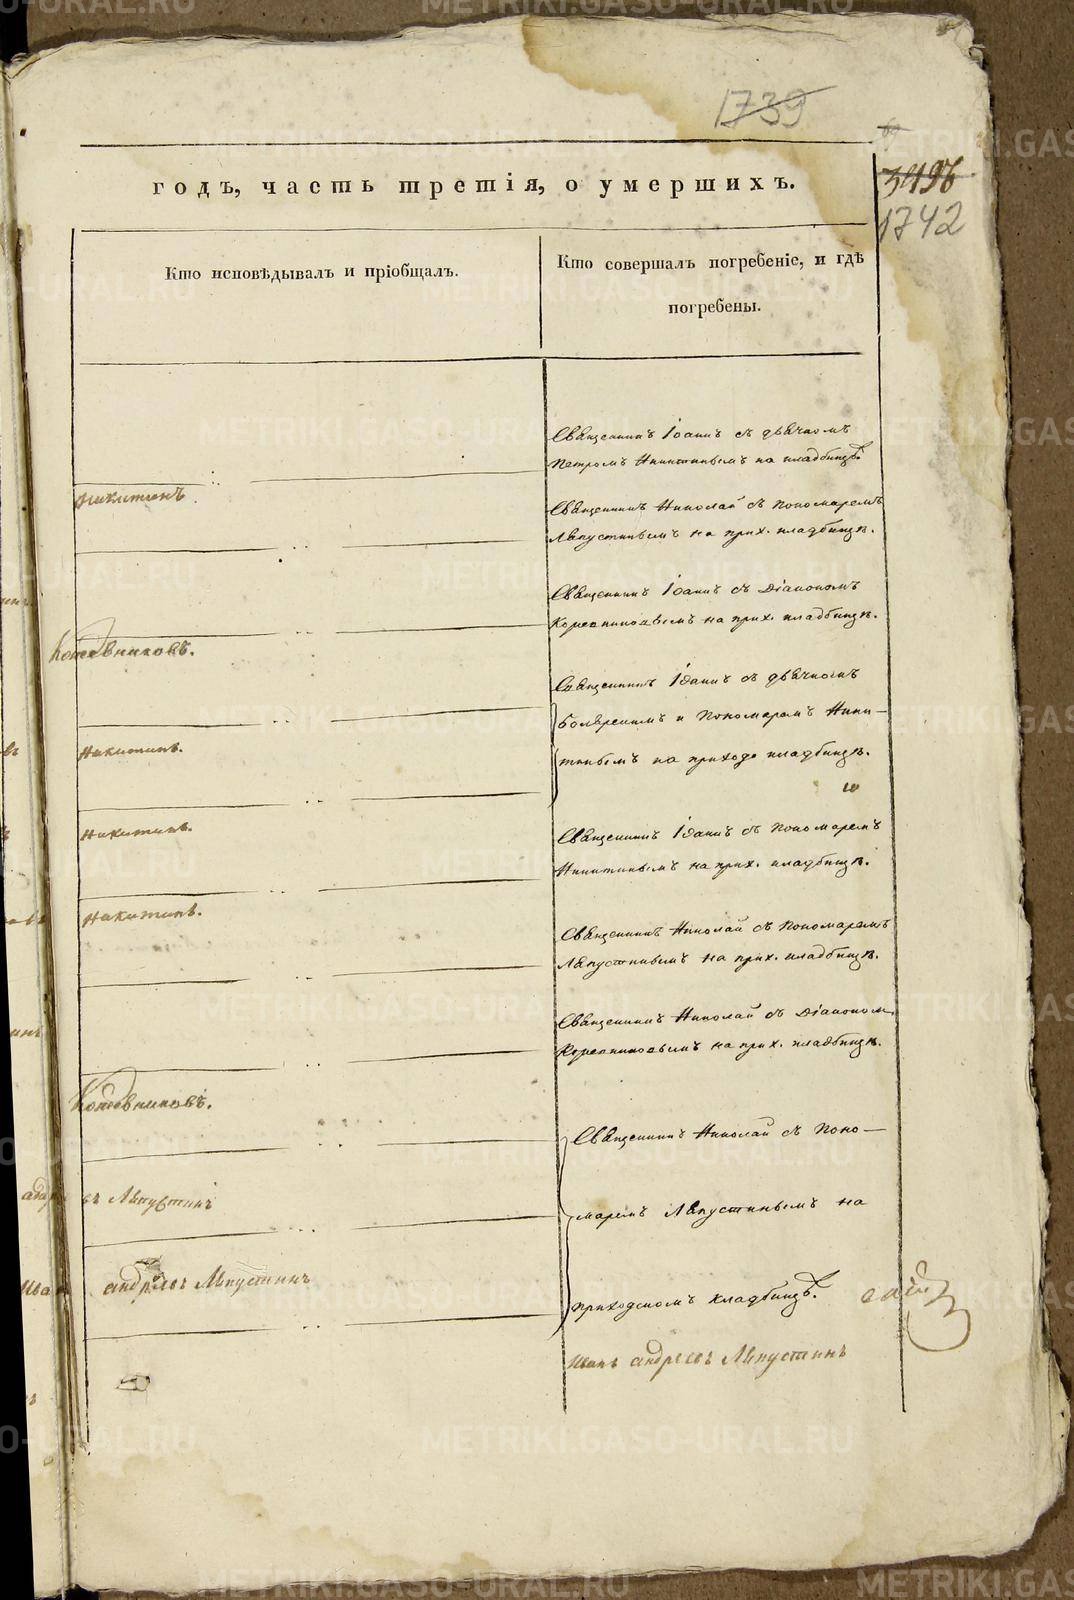 1739
3498
1742
годъ, часть третія, о умершихъ.
Кто исповѣдывалъ и пріобщалъ.
Кто совершалъ погребеніе, и гдѣ
погребены.
Священникъ Іоаннъ съ дьячкомъ
Петромъ Никитинымъ на кладбищѣ.
Никитинъ
Священникъ Николай съ пономаремъ
Ляпустинымъ на прих. кладбищѣ.
Священникъ Іоаннъ съ Діакономъ
на прих. кладбищѣ.
Священникъ Іоаннъ съ дьячкомъ
и Пономаремъ Ники-
тинымъ на приходс кладбищѣ.
Никитинъ.
Священникъ Іоаннъ съ Пономаремъ
Никитинымъ на прих. кладбищѣ.
Никитинъ.
Никитинъ.
Священникъ Николай съ Пономаремъ
Ляпустинымъ на прих. кладбищѣ.
Священникъ Николай съ Діакономъ
на прих. кладбищѣ.
Священникъ Николай съ Поно-
маремъ Ляпустинымъ на
приходскомъ кладбищѣ.
въ Ляпустинъ
андреевъ Ляпустинъ
Иванъ андреевъ Ляпустинъ
METRIKI.GASO-URAL.RU